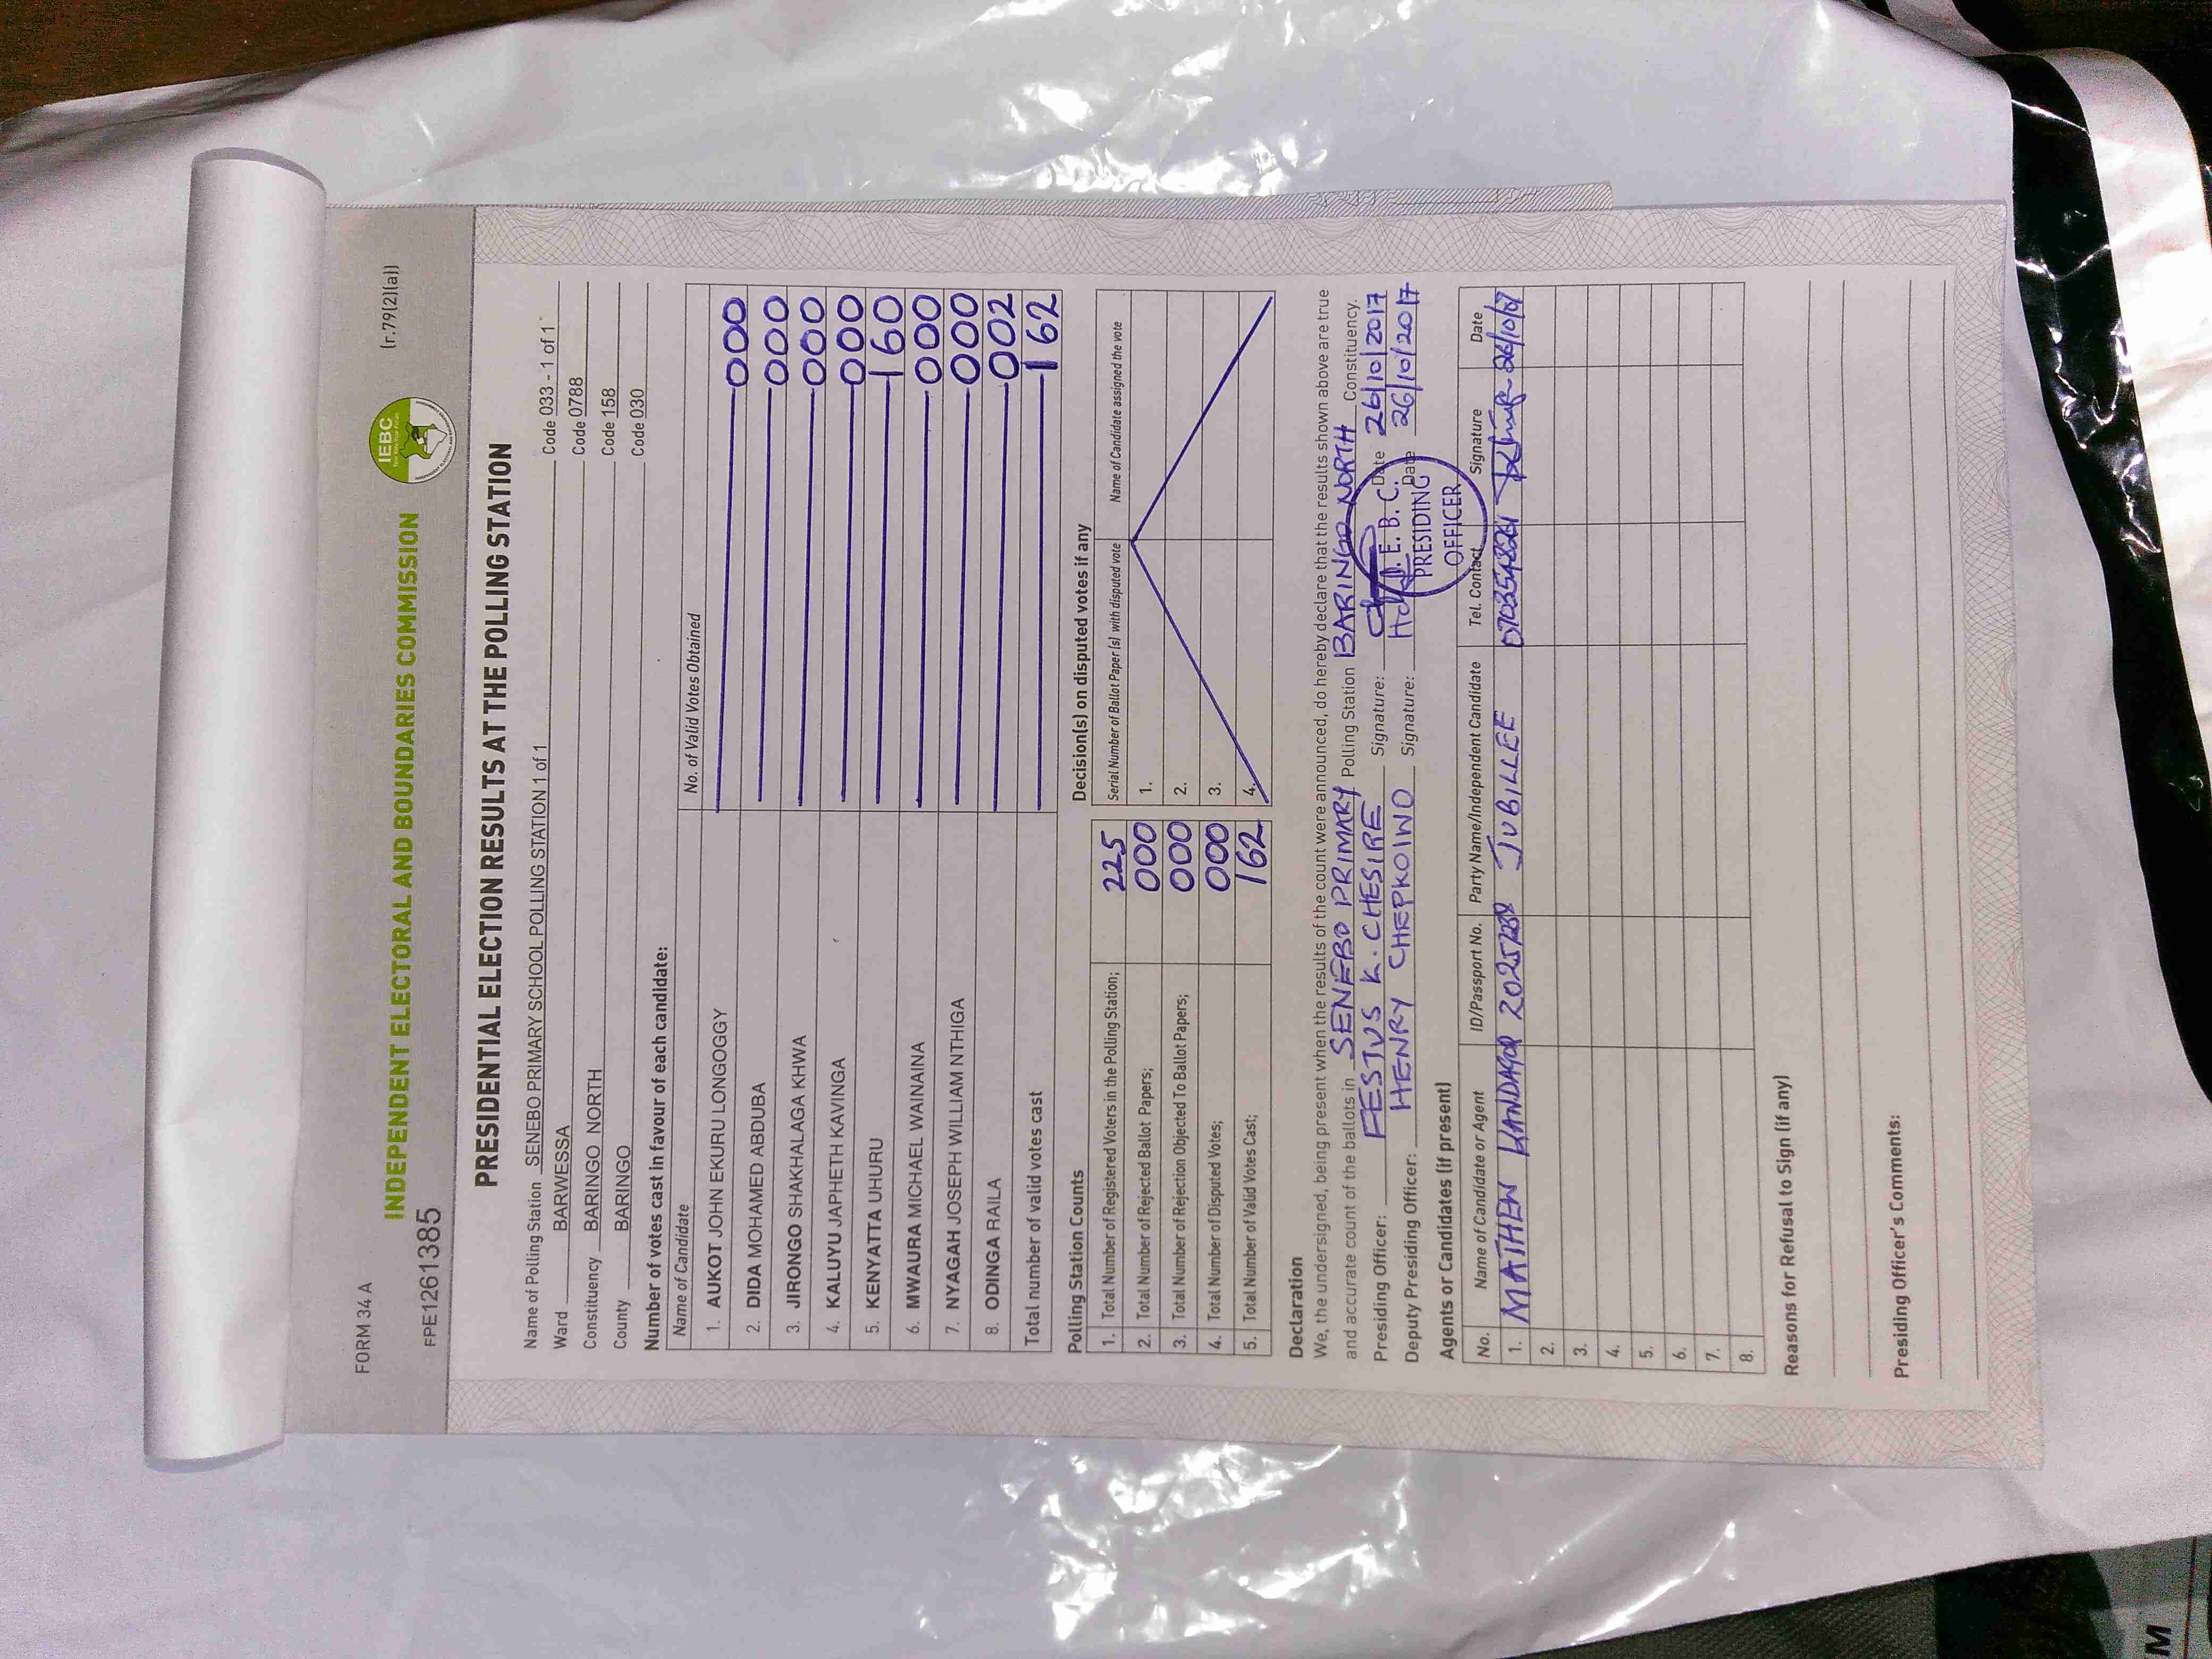 FORM 34 A
(r.79(2)(a))
INDEPENDENT ELECTORAL AND BOUNDARIES COMMISSION
IEBC
FPE1261385
PRESIDENTIAL ELECTION RESULTS AT THE POLLING STATION
Name of Polling Station SENEBO PRIMARY SCHOOL POLLING STATION 1 of 1 Code 033 - 1 of 1
Ward BARWESSA Code 0788
Constituency BARINGO NORTH Code 158
County BARINGO Code 030
Number of votes cast in favour of each candidate:
Name of Candidate No. of Valid Votes Obtained
1. AUKOT JOHN EKURU LONGOGGY 000
2. DIDA MOHAMED ABDUBA 000
3. JIRONGO SHAKHALAGA KHWA 000
4. KALUYU JAPHETH KAVINGA 000
5. KENYATTA UHURU 160
6. MWAURA MICHAEL WAINAINA 000
7. NYAGAH JOSEPH WILLIAM NTHIGA 000
8. ODINGA RAILA 002
Total number of valid votes cast 162
Polling Station Counts
1. Total Number of Registered Voters in the Polling Station; 225
2. Total Number of Rejected Ballot Papers; 000
3. Total Number of Rejection Objected To Ballot Papers; 000
4. Total Number of Disputed Votes; 000
5. Total Number of Valid Votes Cast; 162
Decision(s) on disputed votes if any
Serial Number of Ballot Paper (s) with disputed vote Name of Candidate assigned the vote
1.
2.
3.
4.
Declaration
We, the undersigned, being present when the results of the count were announced, do hereby declare that the results shown above are true
and accurate count of the ballots in SENEBO PRIMARY Polling Station BARINGO NORTH Constituency.
Presiding Officer: FESTUS K. CHESIRE Signature: Date 26/10/2017
Deputy Presiding Officer: HENRY CHEPKOIWO Signature: Date 26/10/2017
I. E. B. C.
PRESIDING
OFFICER
Agents or Candidates (if present)
No. Name of Candidate or Agent ID/Passport No. Party Name/Independent Candidate Tel. Contact Signature Date
1. MATHEW KANDAGOR JUBILLEE
2.
3.
4.
5.
6.
7.
8.
Reasons for Refusal to Sign (if any)
Presiding Officer's Comments:
M